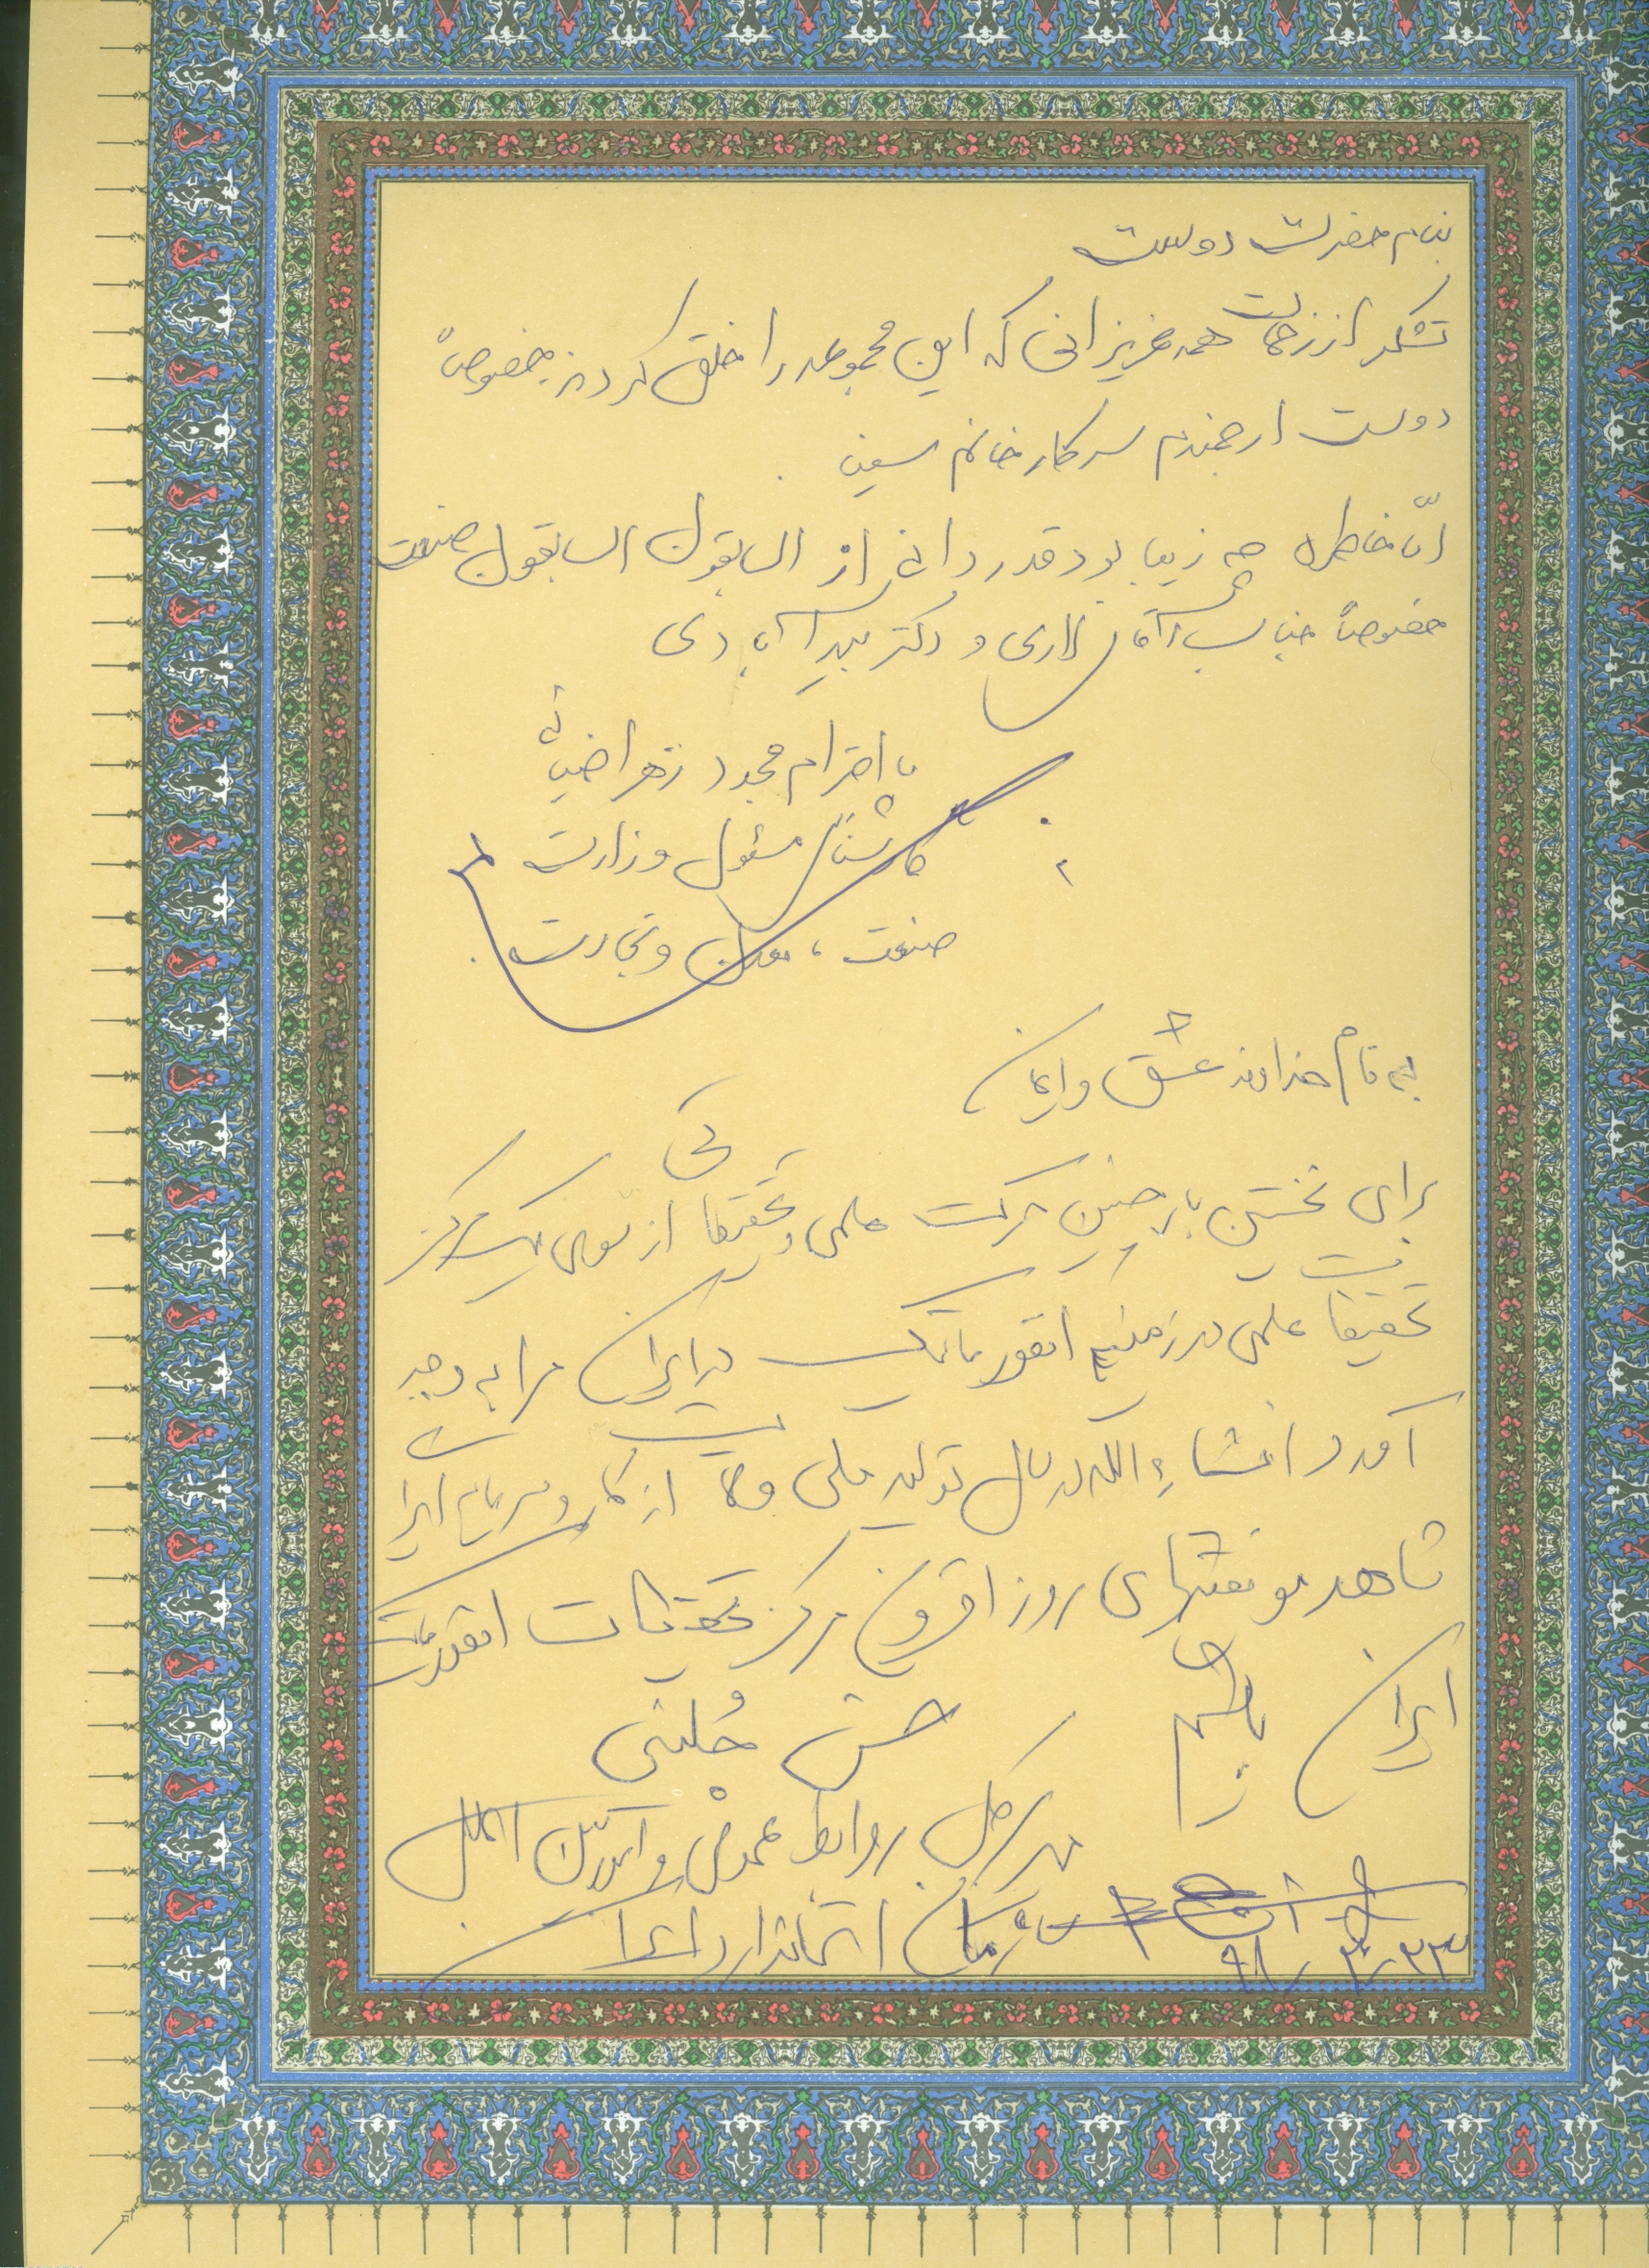 بنام حضرت دوست
تشکر از زحمات همه عزیزانی که این مجموعه را خلق کردند بخصوصاً
دوست ارجمندم سرکار خانم
امّا خاطره چه زیبا بود قدردانی از السابقون السابقون صنعت
خصوصاً جناب آقای و دکتر
با احترام مجدد زهرا ضیائی
کارشناس مسئول وزارت
صنعت، معدن و تجارت
به نام خداوند عشق و ایمان
برای نخستین بار چنین حرکت علمی و تحقیقاتی از سوی یک مرکز
تحقیقات علمی در زمینه انفورماتیک در ایران مرا به وجد
آورد انشاءالله در سال تولید ملی و حمایت از کار و سرمایه ایرانی
شاهد موفقیتهای روز افزون مرکز تحقیقات انفورماتیک
ایران باشیم
حسن
مدیر کل روابط عمومی و امور بین الملل
سازمان استاندارد ایران